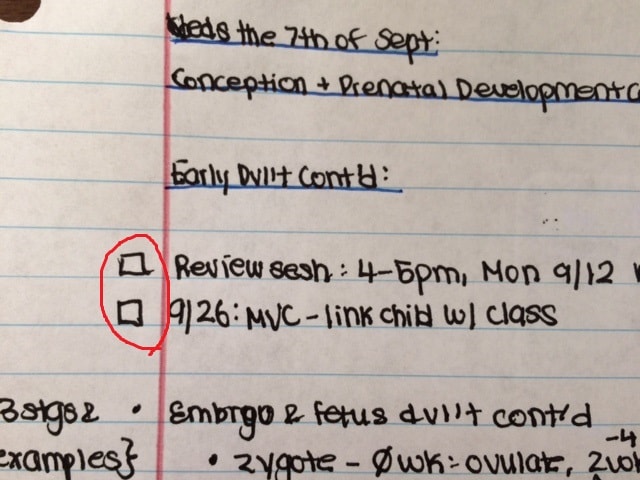 Weds the 7th of Sept:
Conception + Prenatal Development
Early Dvl't Cont'd:
Review sesh: 4-5pm, Mon 9/12
9/26: MVC - link child w/ class
3 stgs & • Embryo & fetus dvl't cont'd
examples} • zygote - Ø wk: ovulate,